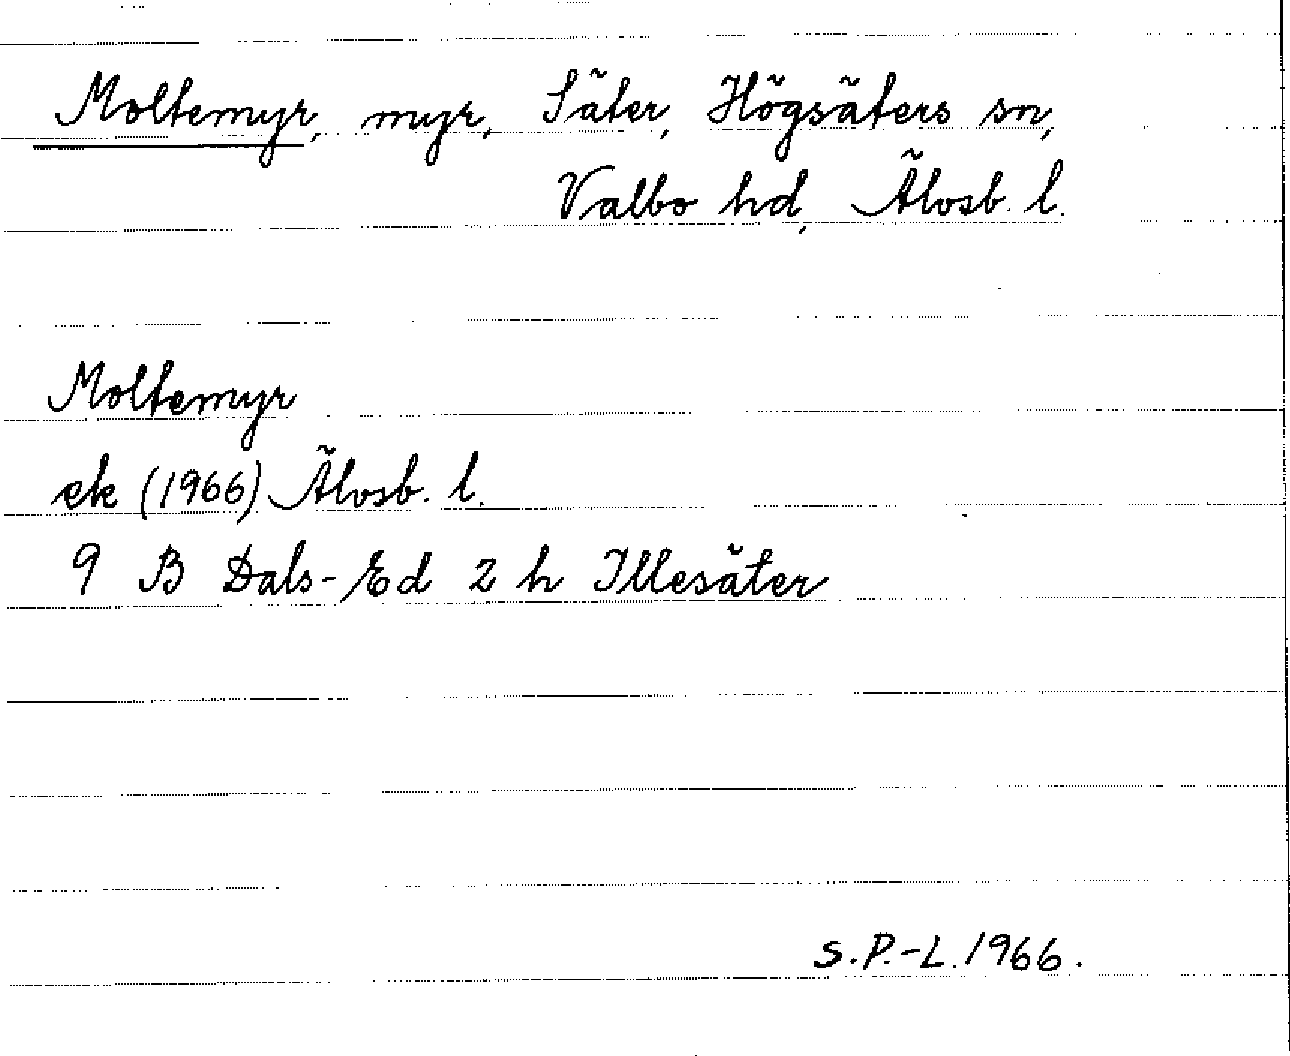 Moltemyr, myr, Säter, Högsäters sn,
Valbo hd, Älvsb. l.
Moltemyr
ek (1966) Älvsb. l.
9 B Dals-Ed 2 h Illesäter
S.P.-L. 1966.